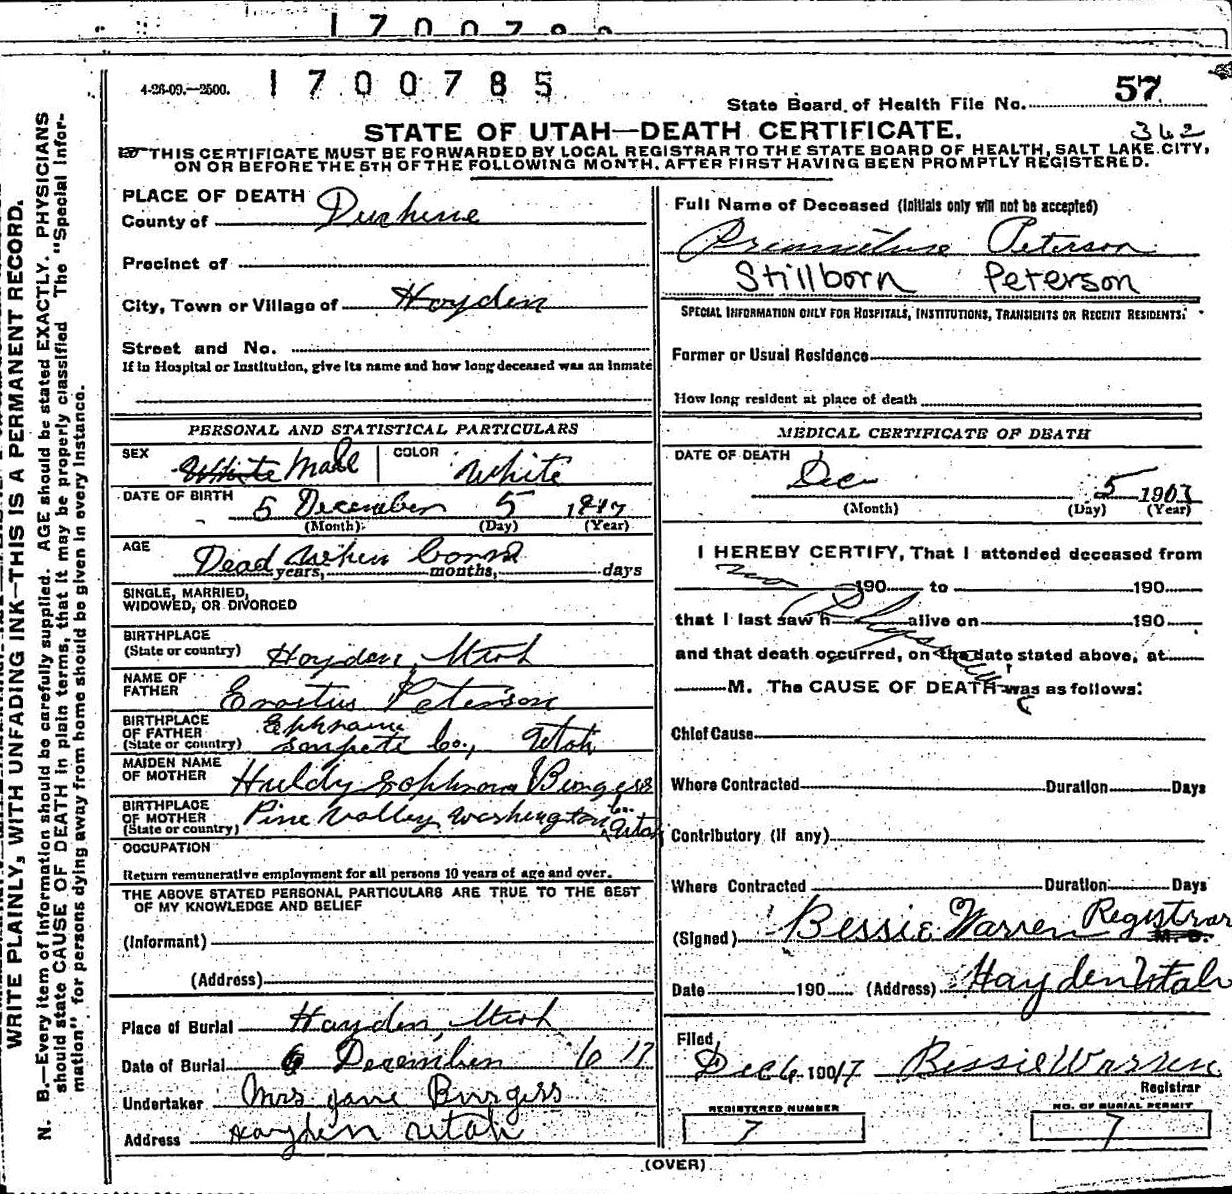 1 7 0 0 7 8
4-26-09.—2500.
1 7 0 0 7 8 5
State Board of Health File No. 57
362
STATE OF UTAH—DEATH CERTIFICATE.
THIS CERTIFICATE MUST BE FORWARDED BY LOCAL REGISTRAR TO THE STATE BOARD OF HEALTH, SALT LAKE CITY,
ON OR BEFORE THE 5TH OF THE FOLLOWING MONTH, AFTER FIRST HAVING BEEN PROMPTLY REGISTERED.
WRITE PLAINLY, WITH UNFADING INK—THIS IS A PERMANENT RECORD.
N. B.—Every item of information should be carefully supplied. AGE should be stated EXACTLY. PHYSICIANS
should state CAUSE OF DEATH in plain terms, that it may be properly classified. The "Special Infor-
mation" for persons dying away from home should be given in every instance.
PLACE OF DEATH
County of Duchine
Precinct of
City, Town or Village of Hayden
Street and No.
If in Hospital or Institution, give its name and how long deceased was an inmate
PERSONAL AND STATISTICAL PARTICULARS
SEX White Male COLOR White
DATE OF BIRTH 5 December 5
(Month) (Day) (Year)
AGE Dead when born
years, months, days
SINGLE, MARRIED,
WIDOWED, OR DIVORCED
BIRTHPLACE
(State or country) Hayden, Utah
NAME OF
FATHER Erastus Peterson
BIRTHPLACE
OF FATHER Ephraim
(State or country) Sanpete Co., Utah
MAIDEN NAME
OF MOTHER Huldy Burgess
BIRTHPLACE
OF MOTHER
(State or country) Pine Valley Washington Co. Utah
OCCUPATION
Return remunerative employment for all persons 10 years of age and over.
THE ABOVE STATED PERSONAL PARTICULARS ARE TRUE TO THE BEST
OF MY KNOWLEDGE AND BELIEF
(Informant)
(Address)
Place of Burial Hayden, Utah
Date of Burial 6 December 6 17
Undertaker Mrs Jane Burgess
Address Hayden Utah
Full Name of Deceased (Initials only will not be accepted)
Peterson
Stillborn Peterson
SPECIAL INFORMATION ONLY FOR HOSPITALS, INSTITUTIONS, TRANSIENTS OR RECENT RESIDENTS.
Former or Usual Residence
How long resident at place of death
MEDICAL CERTIFICATE OF DEATH
DATE OF DEATH
Dec 5
(Month) (Day) (Year)
I HEREBY CERTIFY, That I attended deceased from
no 190 to 190
that I last saw h alive on 190
and that death occurred, on the date stated above, at
M. The CAUSE OF DEATH was as follows:
Chief Cause
Where Contracted Duration Days
Contributory (if any)
Where Contracted Duration Days
(Signed) Bessie Warren Registrar
M. D.
Date 190 (Address) Hayden Utah
Filed
Dec 6 1917 Bessie Warren
Registrar
REGISTERED NUMBER
7
NO. OF BURIAL PERMIT
7
(OVER)